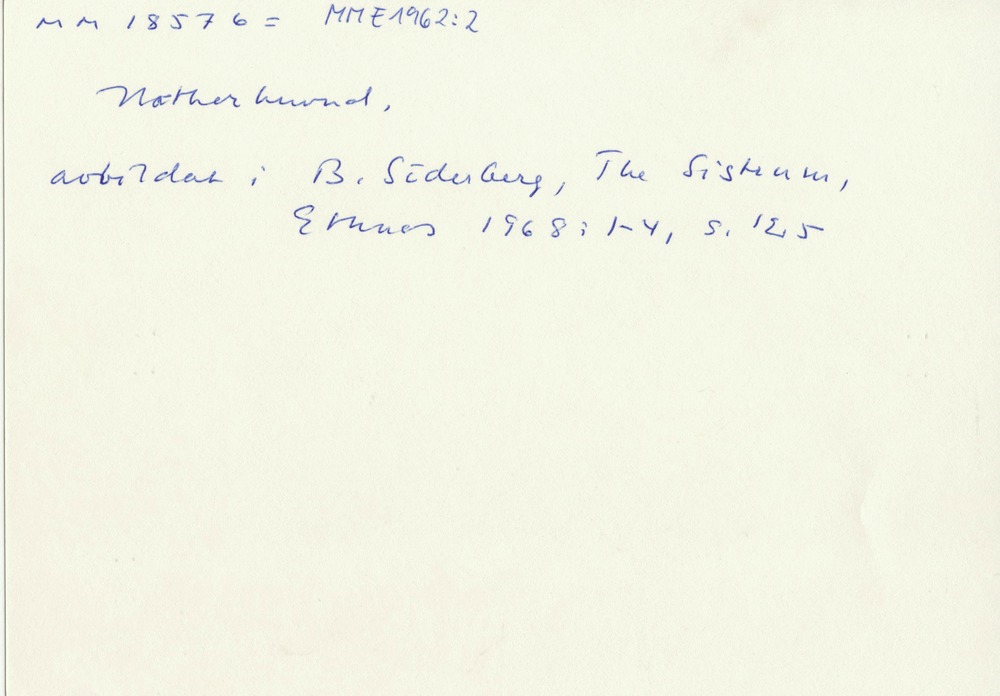 MM 18576 = MME1962:2
Hathorhuvud.
avbildat i B. Söderberg, The Sistrum,
Ethnos 1968:1-4, s. 125